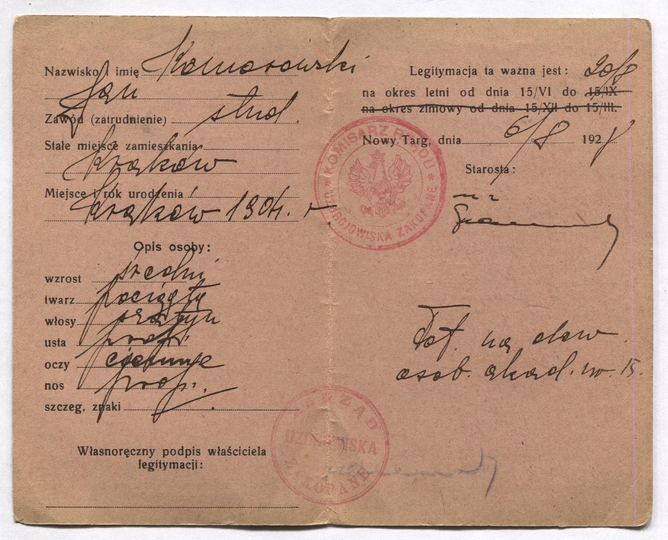 Nazwisko i imię Komorowski
Jan
Zawód (zatrudnienie) stud.
Stałe miejsce zamieszkania
Kraków
Miejsce i rok urodzenia
Kraków 1904. r.
Opis osoby:
wzrost średni
twarz pociągły
włosy
usta prop.
oczy
nos prop.
szczeg. znaki
Własnoręczny podpis właściciela
legitymacji:
Legitymacja ta ważna jest: 20/8
na okres letni od dnia 15/VI do 15/IX
na okres zimowy od dnia 15/XII do 15/III.
Nowy Targ, dnia 6/8 192
Starosta:
KOMISARZ RZĄDU
UZDROJOWISKA ZAKOPANE
na dow.
osob. akad. nr. 15.
URZĄD
UZDROJOWISKA
ZAKOPANE